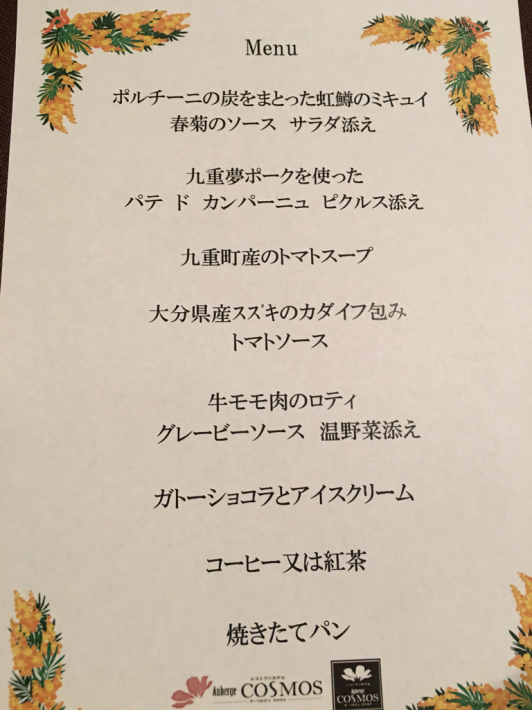 Menu
ポルチーニの炭をまとった虹鱒のミキュイ
春菊のソース　サラダ添え
九重夢ポークを使った
パテ　ド　カンパーニュ　ピクルス添え
九重町産のトマトスープ
大分県産スズキのカダイフ包み
トマトソース
牛モモ肉のロティ
グレービーソース　温野菜添え
ガトーショコラとアイスクリーム
コーヒー又は紅茶
焼きたてパン
Auberge COSMOS
Auberge
COSMOS